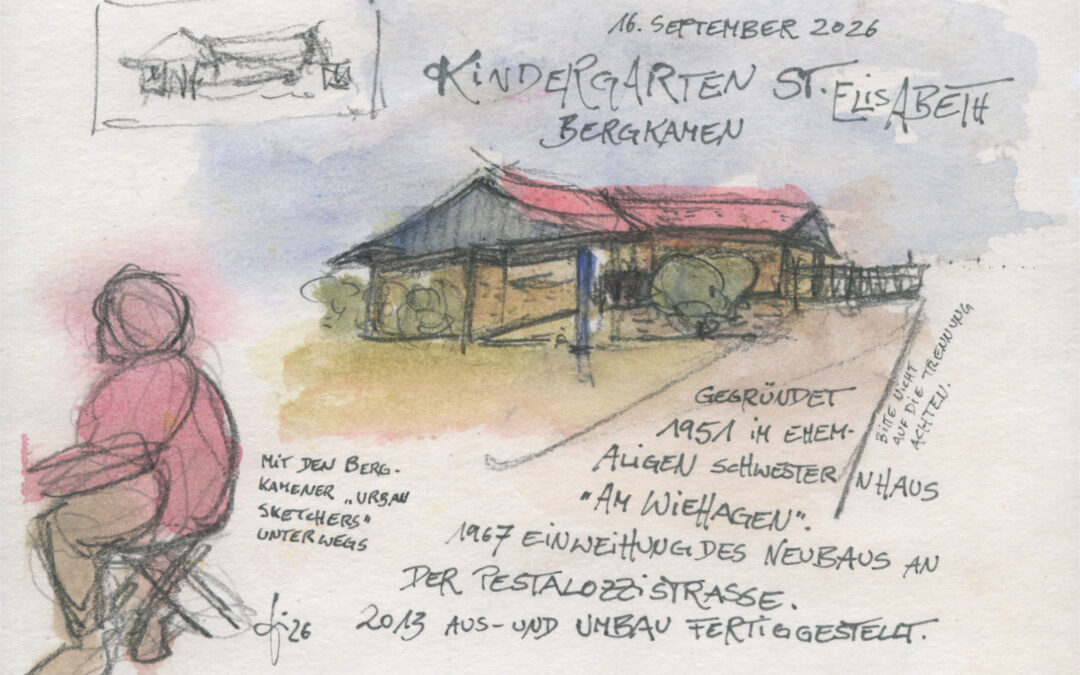 16. SEPTEMBER 2026
KINDERGARTEN ST. ELISABETH
BERGKAMEN
BITTE NICHT
AUF DIE TRENNUNG
ACHTEN.
GEGRÜNDET
1951 IM EHEM-
ALIGEN SCHWESTERNHAUS
"AM WIEHAGEN".
1967 EINWEIHUNG DES NEUBAUS AN
DER PESTALOZZISTRASSE.
2013 AUS- UND UMBAU FERTIGGESTELLT.
MIT DEN BERG-
KAMENER „URBAN
SKETCHERS"
UNTERWEGS
26